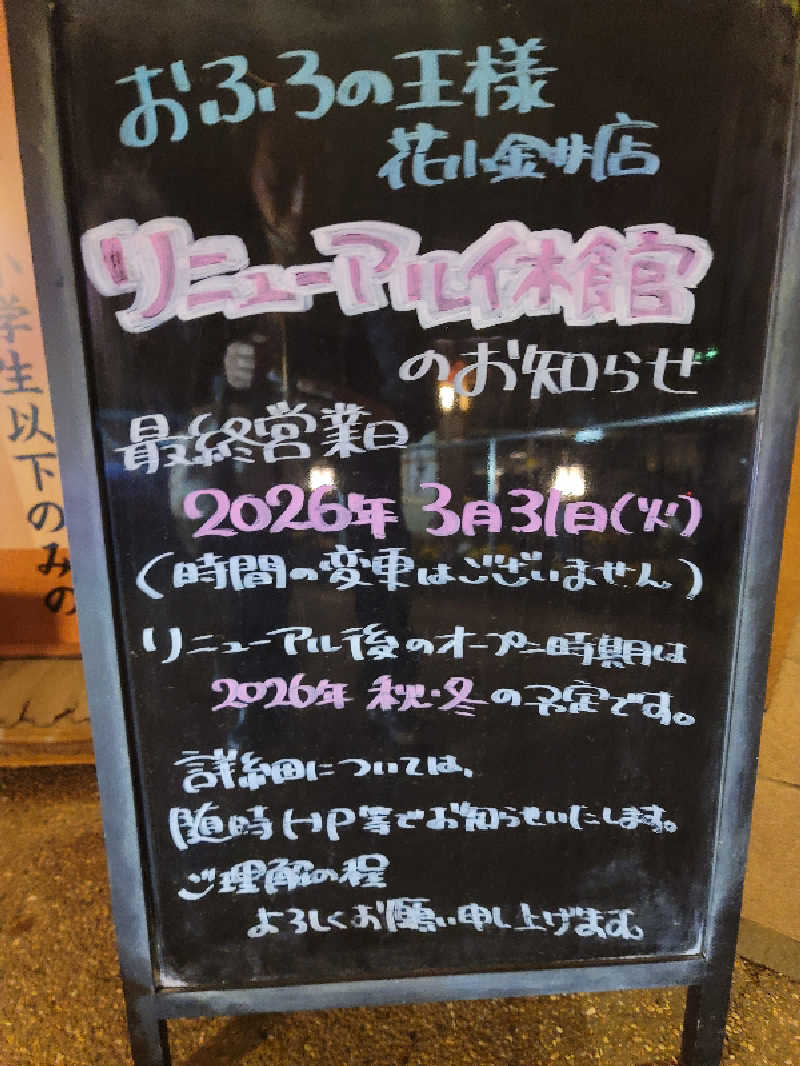 おふろの王様
花小金井店
リニューアル休館
のお知らせ
最終営業日
2026年 3月31日(火)
(時間の変更はございません)
リニューアル後のオープン時期は
2026年 秋・冬の予定です。
詳細については、
随時HP等でお知らせいたします。
ご理解の程
よろしくお願い申し上げます。
小学生以下のみの